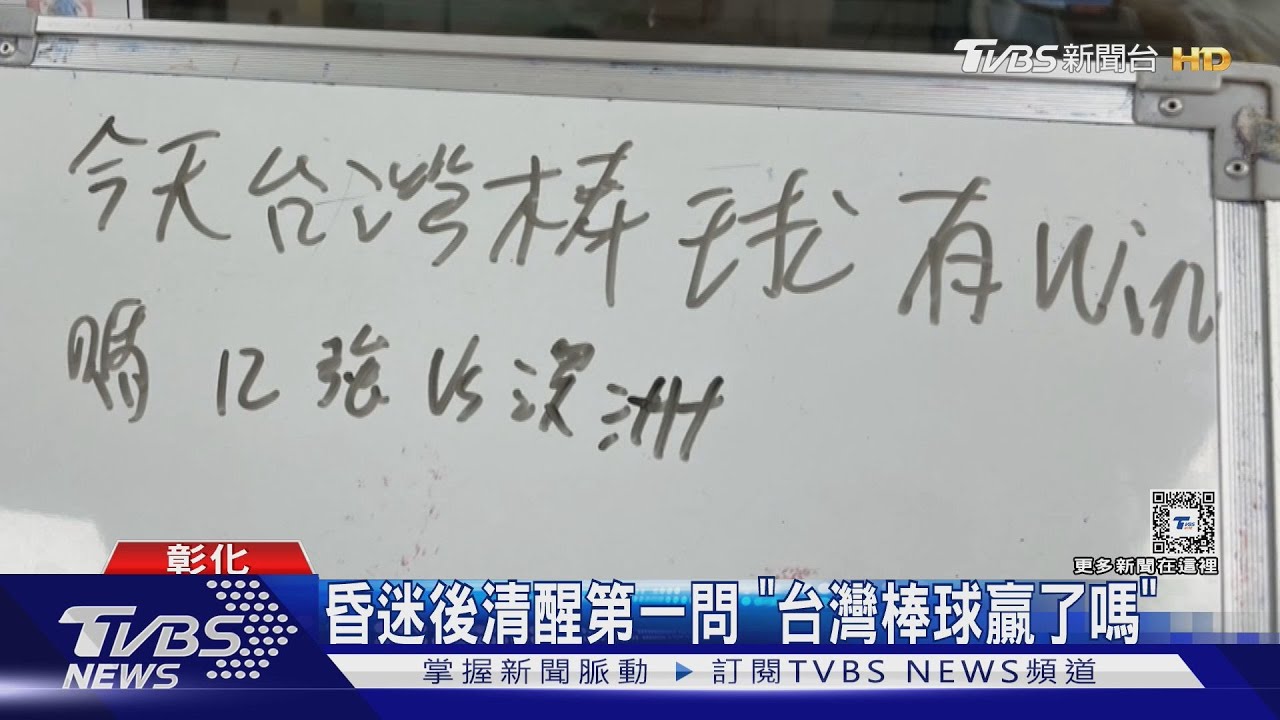 TVBS新聞台 HD
今天台灣棒球有Win
嗎 12強 VS 澳洲
更多新聞在這裡
彰化
昏迷後清醒第一問 "台灣棒球贏了嗎"
TVBS NEWS
掌握新聞脈動 ▶ 訂閱TVBS NEWS頻道